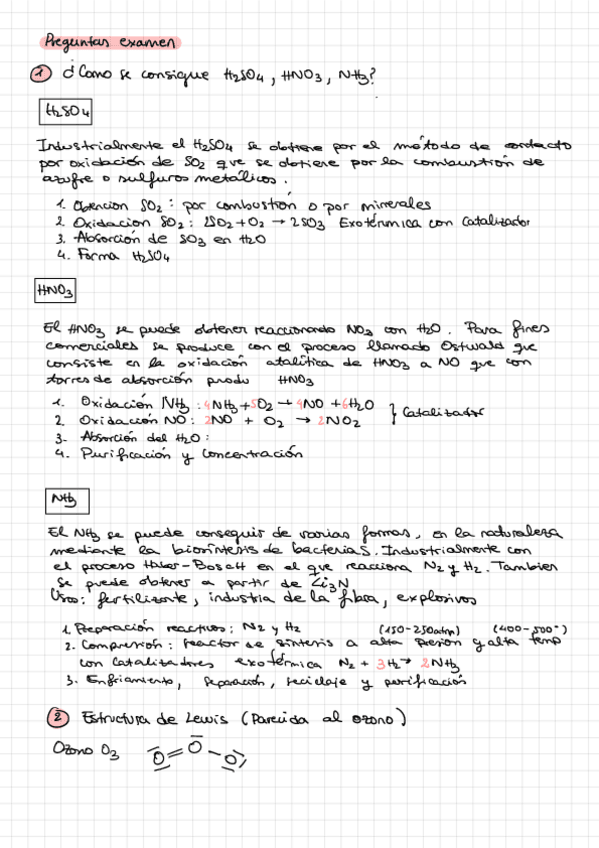 Preguntas examen
1 ¿Como se consigue H2SO4, HNO3, NH3?
H2SO4
Industrialmente el H2SO4 se obtiene por el método de contacto
por oxidación de SO2 que se obtiene por la combustión de
azufre o sulfuros metálicos.
1. Obencion SO2: por combustión o por minerales
2. Oxidacion SO2: 2SO2 + O2 → 2SO3 Exotérmica con Catalizador
3. Absorción de SO3 en H2O
4. Forma H2SO4
HNO3
El HNO3 se puede obtener reaccionado NO2 con H2O. Para fines
comerciales se produce con el proceso llamado Ostwald que
consiste en la oxidación atalítica de HNO3 a NO que con
torres de absorción produ HNO3
1. Oxidación NH3: 4NH3 + 5O2 → 4NO + 6H2O
2. Oxidación NO: 2NO + O2 → 2NO2 } Catalizador
3. Absorción del H2O:
4. Purificación y concentración
NH3
El NH3 se puede conseguir de varias formas, en la naturaleza
mediante la biosíntesis de bacterias. Industrialmente con
el proceso Haber-Bosch en el que reacciona N2 y H2. Tambien
se puede obtener a partir de Li3N
Usos: fertilizante, industria de la fibra, explosivos
1. Preparación reactivos: N2 y H2 (150-250atm) (400-500°)
2. Compresión: reactor de síntesis a alta presión y alta temp
con catalizadores exotérmica N2 + 3H2 → 2NH3
3. Enfriamiento, separación, reciclaje y purificación
2 Estructura de Lewis (Parecida al ozono)
Ozono O3 O=O-O